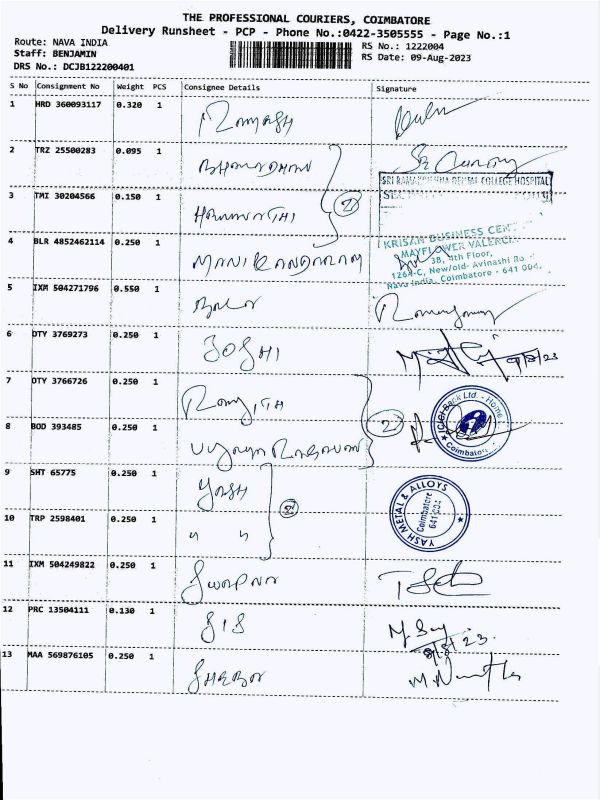 THE PROFESSIONAL COURIERS, COIMBATORE
Delivery Runsheet - PCP - Phone No.:0422-3505555 - Page No.:1
Route: NAVA INDIA RS No.: 1222004
Staff: BENJAMIN RS Date: 09-Aug-2023
DRS No.: DCJB122200401
S No Consignment No Weight PCS Consignee Details Signature
1 HRD 360093117 0.320 1
2 TRZ 25500283 0.095 1
SRI RAMAKRISHNA DENTAL COLLEGE HOSPITAL
3 TMI 30204566 0.150 1
KRISAN BUSINESS
MAYFLOWER VALENCIA
3B, 4th Floor,
1264-C, New/old- Avinashi Ro
Nava India, Coimbatore - 641 004.
4 BLR 4852462114 0.250 1 MANIKANDARAM
5 IXM 504271796 0.550 1
6 DTY 3769273 0.250 1 JOSHI
7 DTY 3766726 0.250 1 RANJITH
2
ICICI Bank Ltd. - Home
Coimbatore
8 BOD 393485 0.250 1
9 SHT 65775 0.250 1 YASH
2
YASH METAL & ALLOYS
Coimbatore
641 004
10 TRP 2598401 0.250 1 " "
11 IXM 504249822 0.250 1 SWAPNA
12 PRC 13504111 0.130 1 SIS
13 MAA 569876105 0.250 1